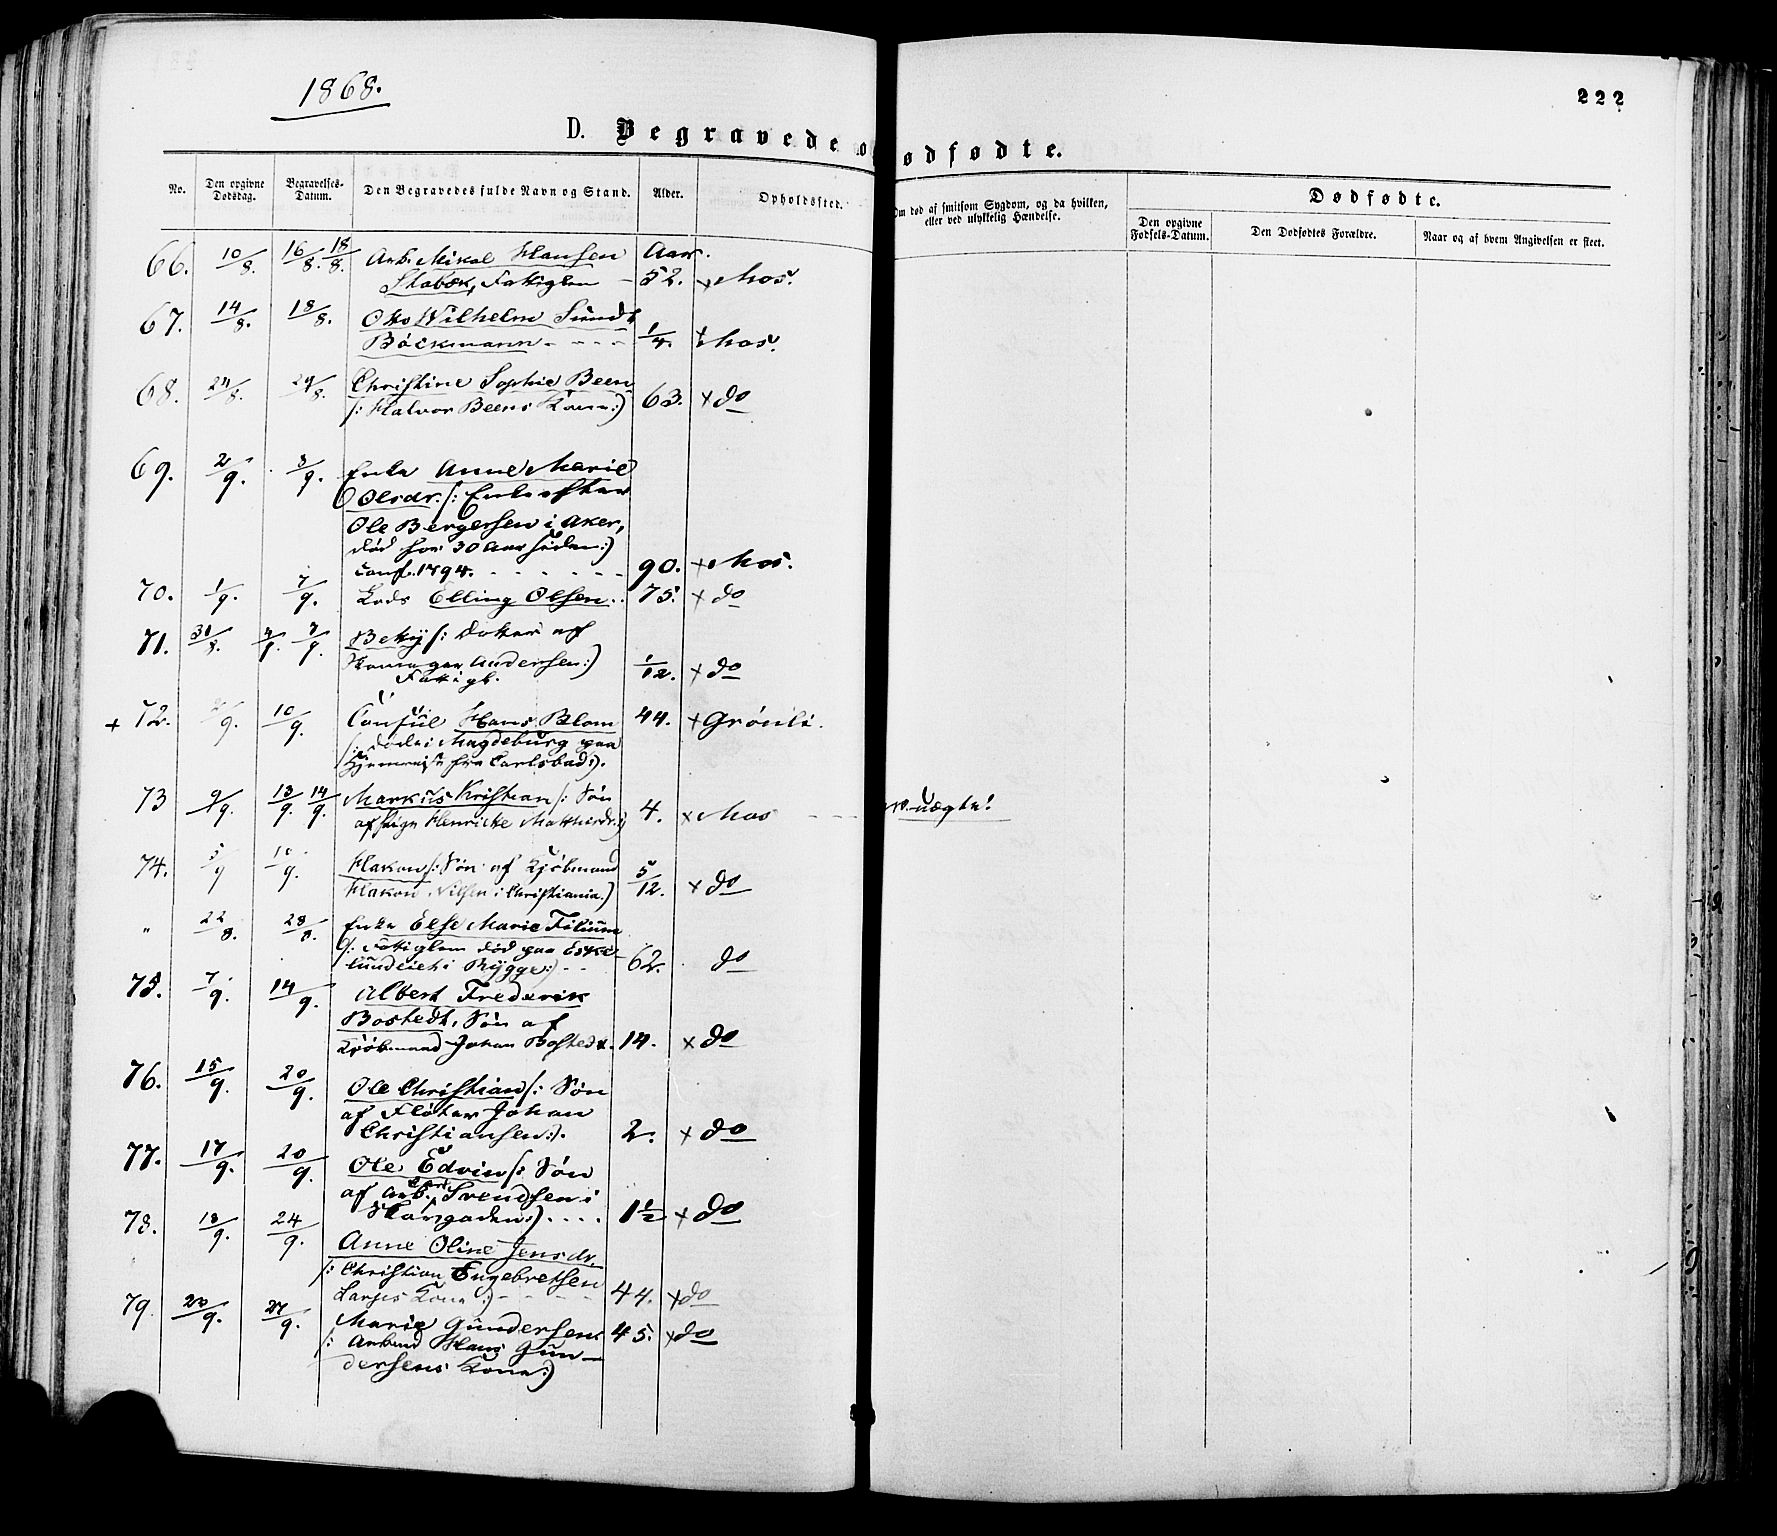 1868.
222
D. Begravede o ødfødte.
No. Den opgivne Dødsdag. Begravelses-Datum. Den Begravedes fulde Navn og Stand. Alder. Opholdssted. Om død af smitsom Sygdom, og da hvilken, eller ved ulykkelig Hændelse. Dødfødte.
Den opgivne Fødsels-Datum. Den Dødfødtes Forældre. Naar og af hvem Angivelsen er skeet.
66. 10/8. 16/8. 18/8. Arb. Mikal Hansen Aar.
Stabæk, Fattiglem - 52. x Mos.
67. 14/8. 18/8. Otto Wilhelm Sundt
Böckmann - - - - 1/4. x Mos.
68. 24/8. 29/8. Christine Sophie Been
/: Halvor Beens Kone :/ 63. x do
69. 2/9. 8/9. Enke Anne Marie
Olsdr. /: Enke efter
Ole Bergersen i Aker,
død for 30 Aar siden :/
conf. 1794. - - - - - - 90. x Mos.
70. 1/9. 7/9. Lods Elling Olsen. . 75. x do
71. 31/8. 4/9. 7/9. Betzy /: Datter af
Andersen :/ 1/12. x do
Fattigl.
+ 72. 10/9. Consul Hans Blom 44. x Grönli.
/: døde i Magdeburg paa
Hjemreise fra Carlsbad :/.
73 9/9. 13/9. 14/9. Markus Kristian /: Søn
af Pige Henrikke Matthisdr. :/ 4. x Mos - - - uægte!
74. 5/9 10/9. Hakon /: Søn af Kjøbmand
Hakon Nilsen i Christiania :/ 5/12. x do
" 22/8. 28/8. Enke Else Marie
/: Fattiglem død paa Eske-
lundeiet i Rygge :/ - - 62. do
75. 7/9. 14/9. Albert Frederik
Bostedt, Søn af
Kjøbmand Johan Bostedt. 14. x do
76. 15/9. 20/9. Ole Christian /: Søn
af Fløter Johan
Christiansen :/. 2. x do
77. 17/9. 20/9. Ole Edvin /: Søn
af Arb. Svendsen i
:/ . . . . 1½ x do
78. 18/9. 24/9. Anne Oline Jensdr.
/: Christian Engebretsen
Kone :/ - - - - 44. x do
79. 20/9. 27/9. Marie Gundersen 45. x do
/: Arbmd Hans Gun-
dersens Kone :/